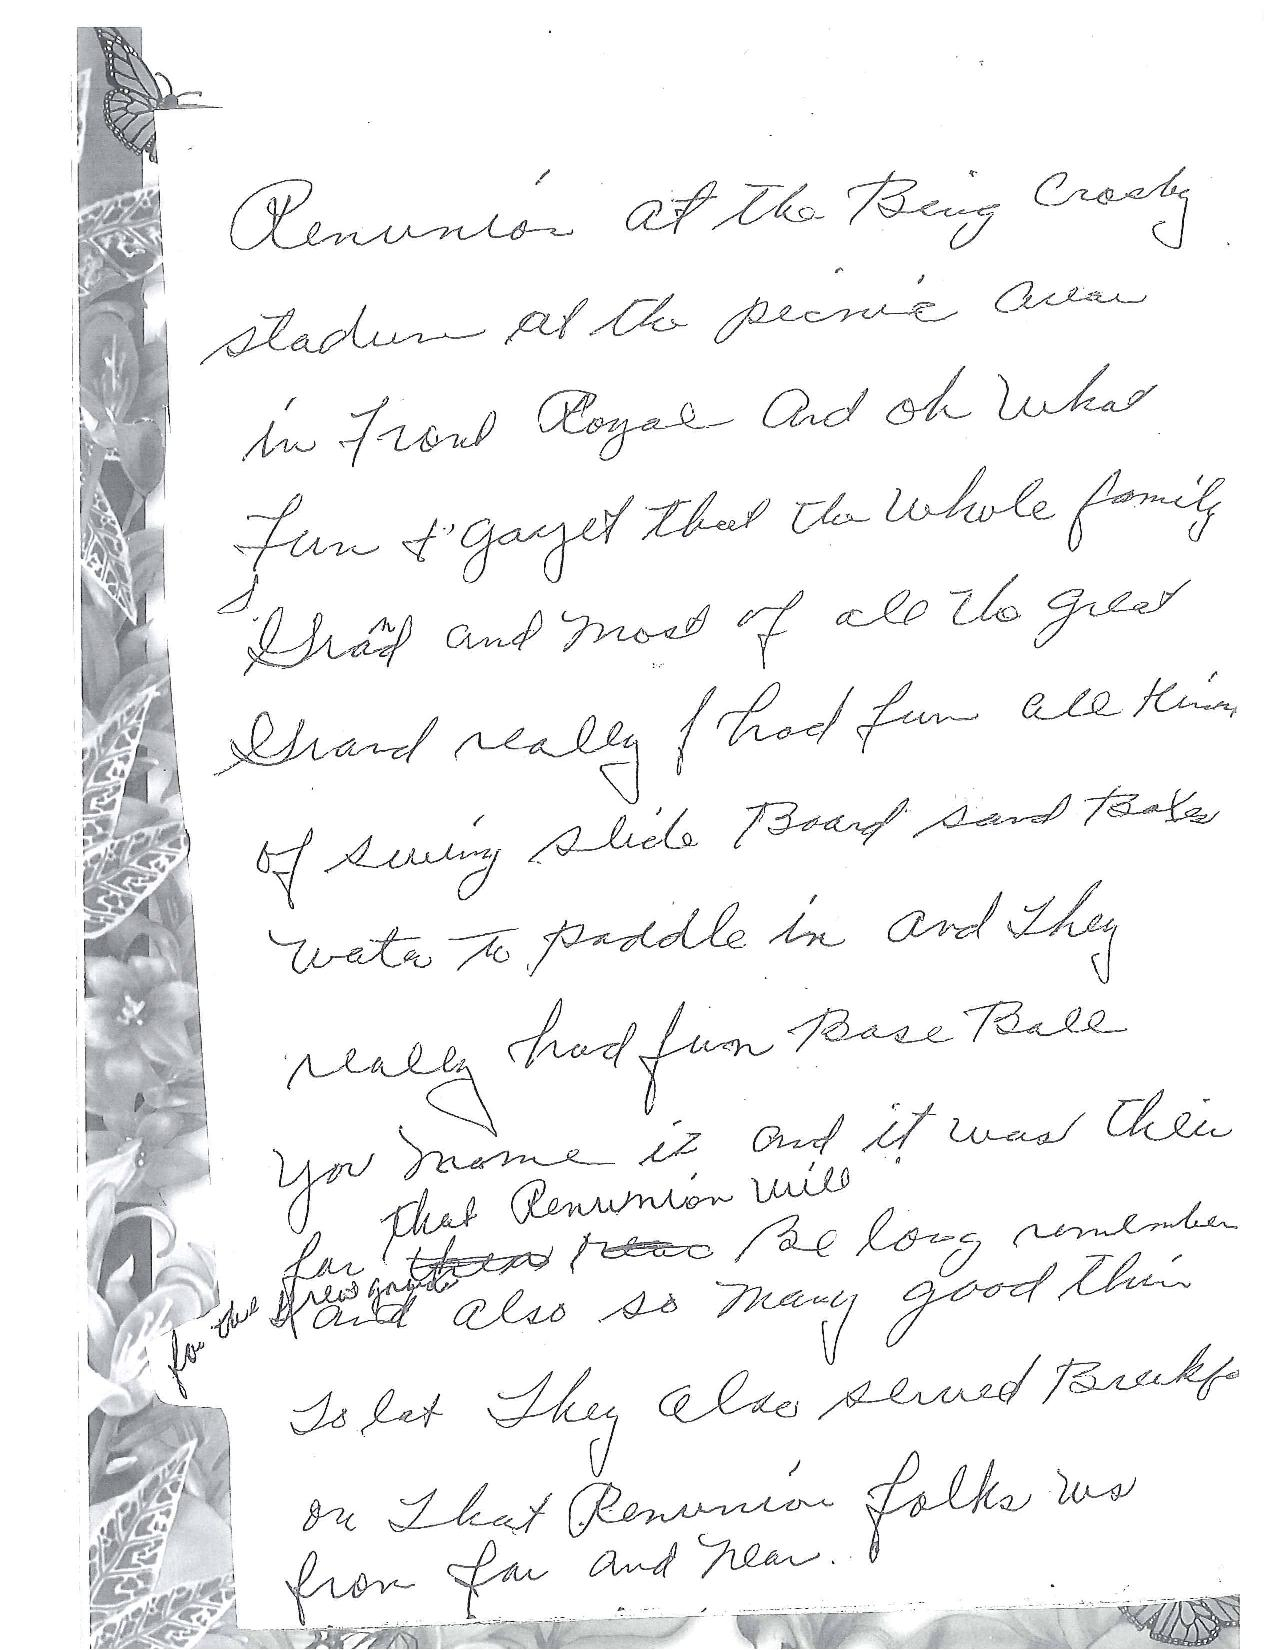 Renunion at the Bing Crosby
stadum at the picnic area
in Front Royal And oh What
Fun & gayet that the whole family
Grand and most of all the great
Grand really had fun all Kinn
of swing slide Board sand Boxes
Wate to paddle in and They
really had fun Base Ball
you name it and it was their
that Renunion will
far Be long remember
for the grand
and also so many good thin
To eat They also served Breakfa
on That Renunion folks ws
from far and near.